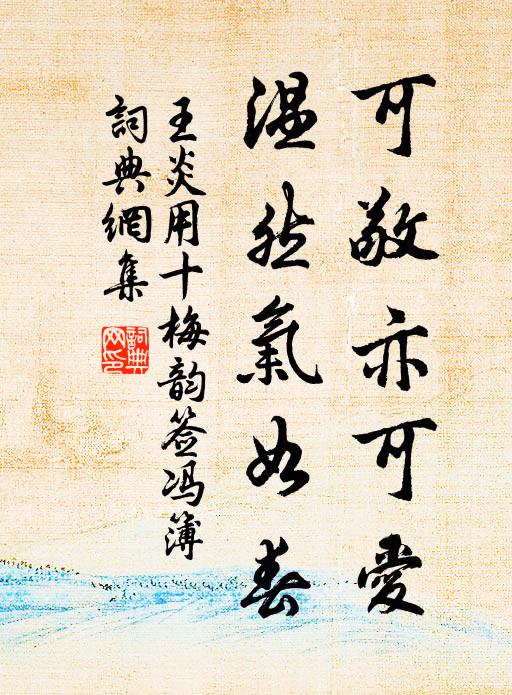 可敬亦可愛
温然氣如春
王炎用十梅韵签冯簿
詞典網集
詞典网印